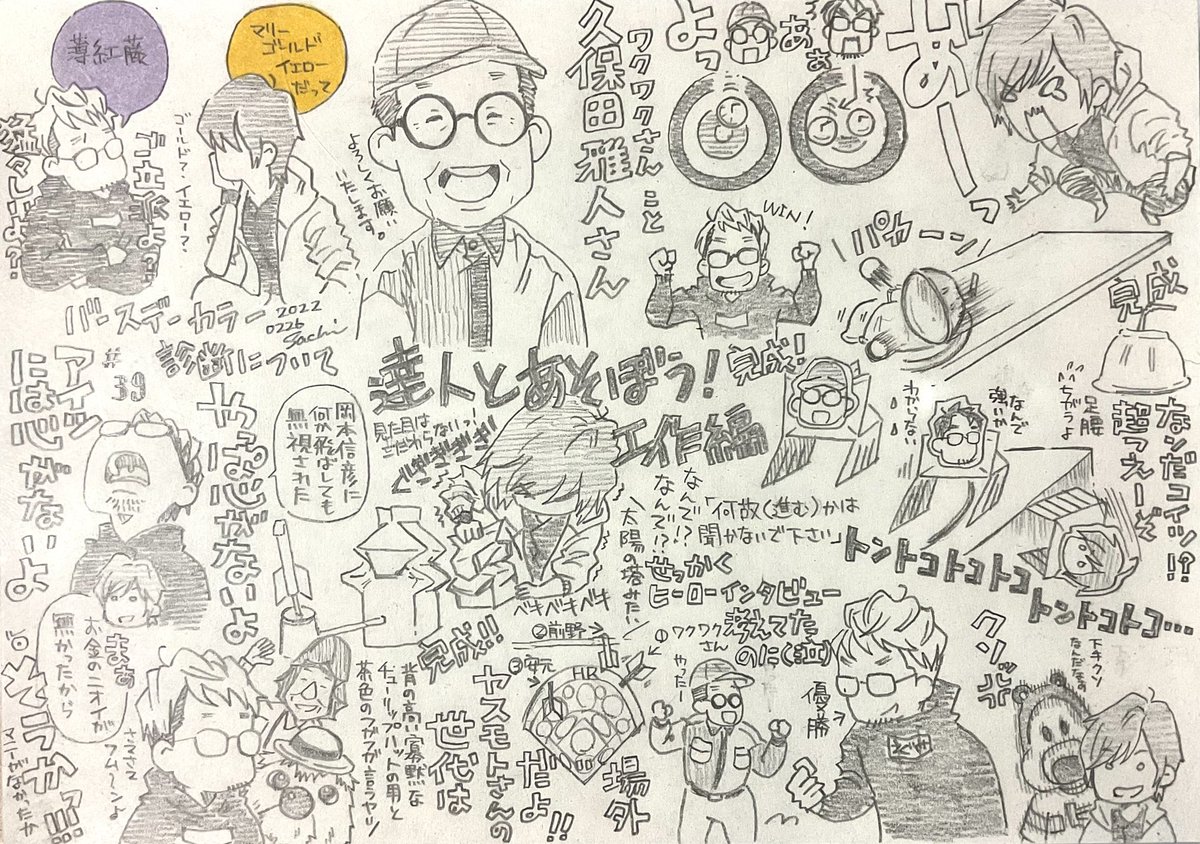 薄紅藤
マリー
ゴールド
イエロー
だって
ゴールド?イエローマ?
よろしくお願い
いたします。
ワクワクさんこと
久保田雅人さん
よっ
あぁ
WIN!
パカーン
完成
バースデーカラー
診断について
2022
0226
Sachi
#39
達人とあそぼう!
工作編
完成!
アイツ
には心がないよ
やっぱ心がないよ
岡本信彦に
何が飛ばしても
無視された
見た目は
ベキベキベキ
なんで!?
なんで!?
太陽の塔みたい
「何故(進む)かは
聞かないで下さい」
わからない
なんで
強いか
ちがうよ
足腰
なンだコイツ!?
超つえーぞ
トントコトコトコ
トントコトコ…
せっかく
ヒーローインタビュー
考えてた
のに(江口)
完成!!
①ワクワク
さん
②前野
③安元
HR
場外
やったー
優勝
えぐち
クソッ
下手クソ
なんだな
まぁ
お金のニオイが
無かったから
フム〜ンよ
マニーがなかったか
そこうか!!!
ヤスモトさんの
世代は
だよ!!
背の高い寡黙な
チューリップハットの男と
茶色のフガフガ言うヤツ